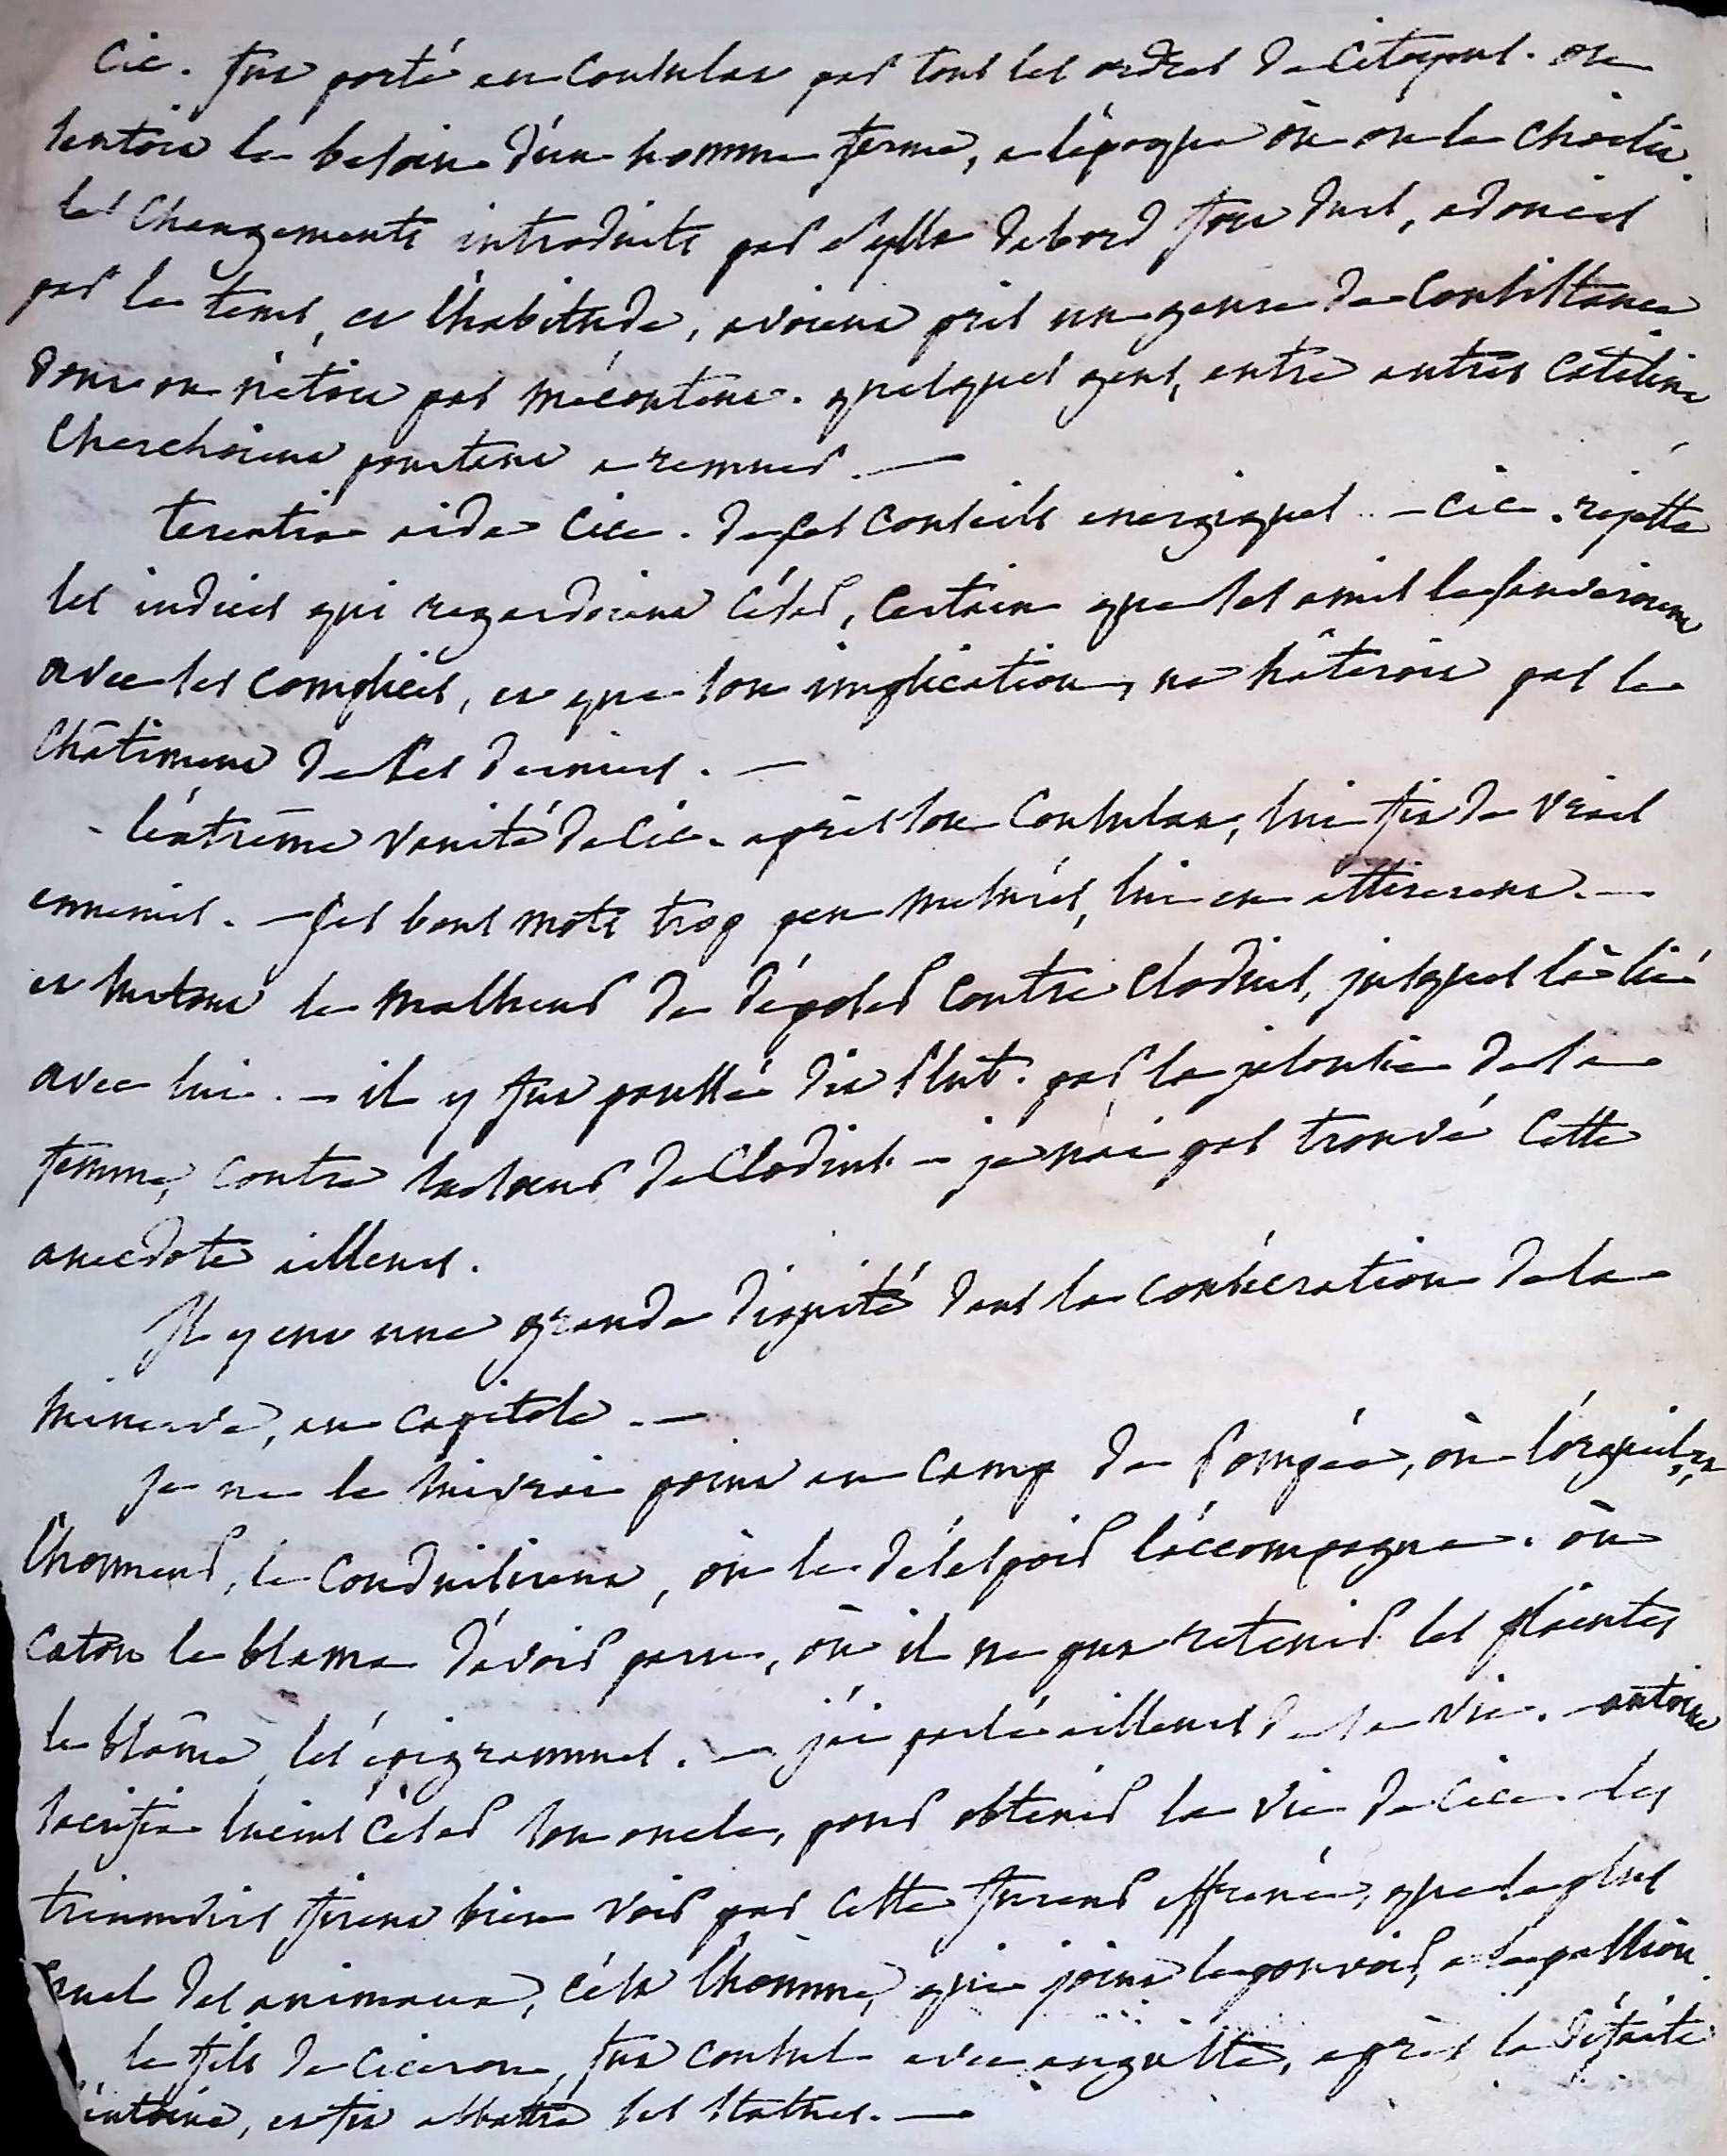 Cic. fut porté au consulat par tous les ordres de citoyens. on
sentoit le besoin d'un homme ferme, a l'époque où on le choisit.
les changements introduits par Sylla dabord fort durs, adoucis
par le tems, et l'habitude, avoient pris un genre de consistance
dont on n'étoit pas mécontent. quelques gens, entre autres Catilina
cherchoient pourtant a remuer. —
terentia aida Cic. de ses conseils energiques. — Cic. rejetta
les indices qui regardoient César, certain que ses amis le sauveroient
avec les complices, et que son implication, ne hâteroit pas le
châtiment de ces derniers. —
- l'extrême vanité de Cic. après son consulat, lui fit de vrais
ennemis. — ses bons mots trop peu mesurés, lui en attirerent. —
et surtout le malheur de déposer contre Clodius, jusques là lié
avec lui. — il y fut poussé dit Plut. par la jalousie de sa
femme, contre la soeur de Clodius — je n'ai pas trouvé cette
anecdote ailleurs.
Il y eut une grande dignité dans la consécration de la
minerve, au capitole. —
je ne le suivrai point au camp de Pompée, où l'orgueil, et
l'honneur, le conduisirent, où le désespoir l'accompagna. où
Caton le blama d'avoir paru, où il ne put retenir les plaintes
le blâme, les épigrammes. — j'ai parlé ailleurs de sa vie. — antoine
sacrifia Lucius César son oncle, pour obtenir la vie de Cic. les
triumvirs firent bien voir par cette fureur effrenée, que le plus
cruel des animaux, c'est l'homme, qui joint le pouvoir, a la passion.
le fils de Ciceron, fut consul avec auguste, après la défaite
d'antoine, et fit abbattre ses statues. —